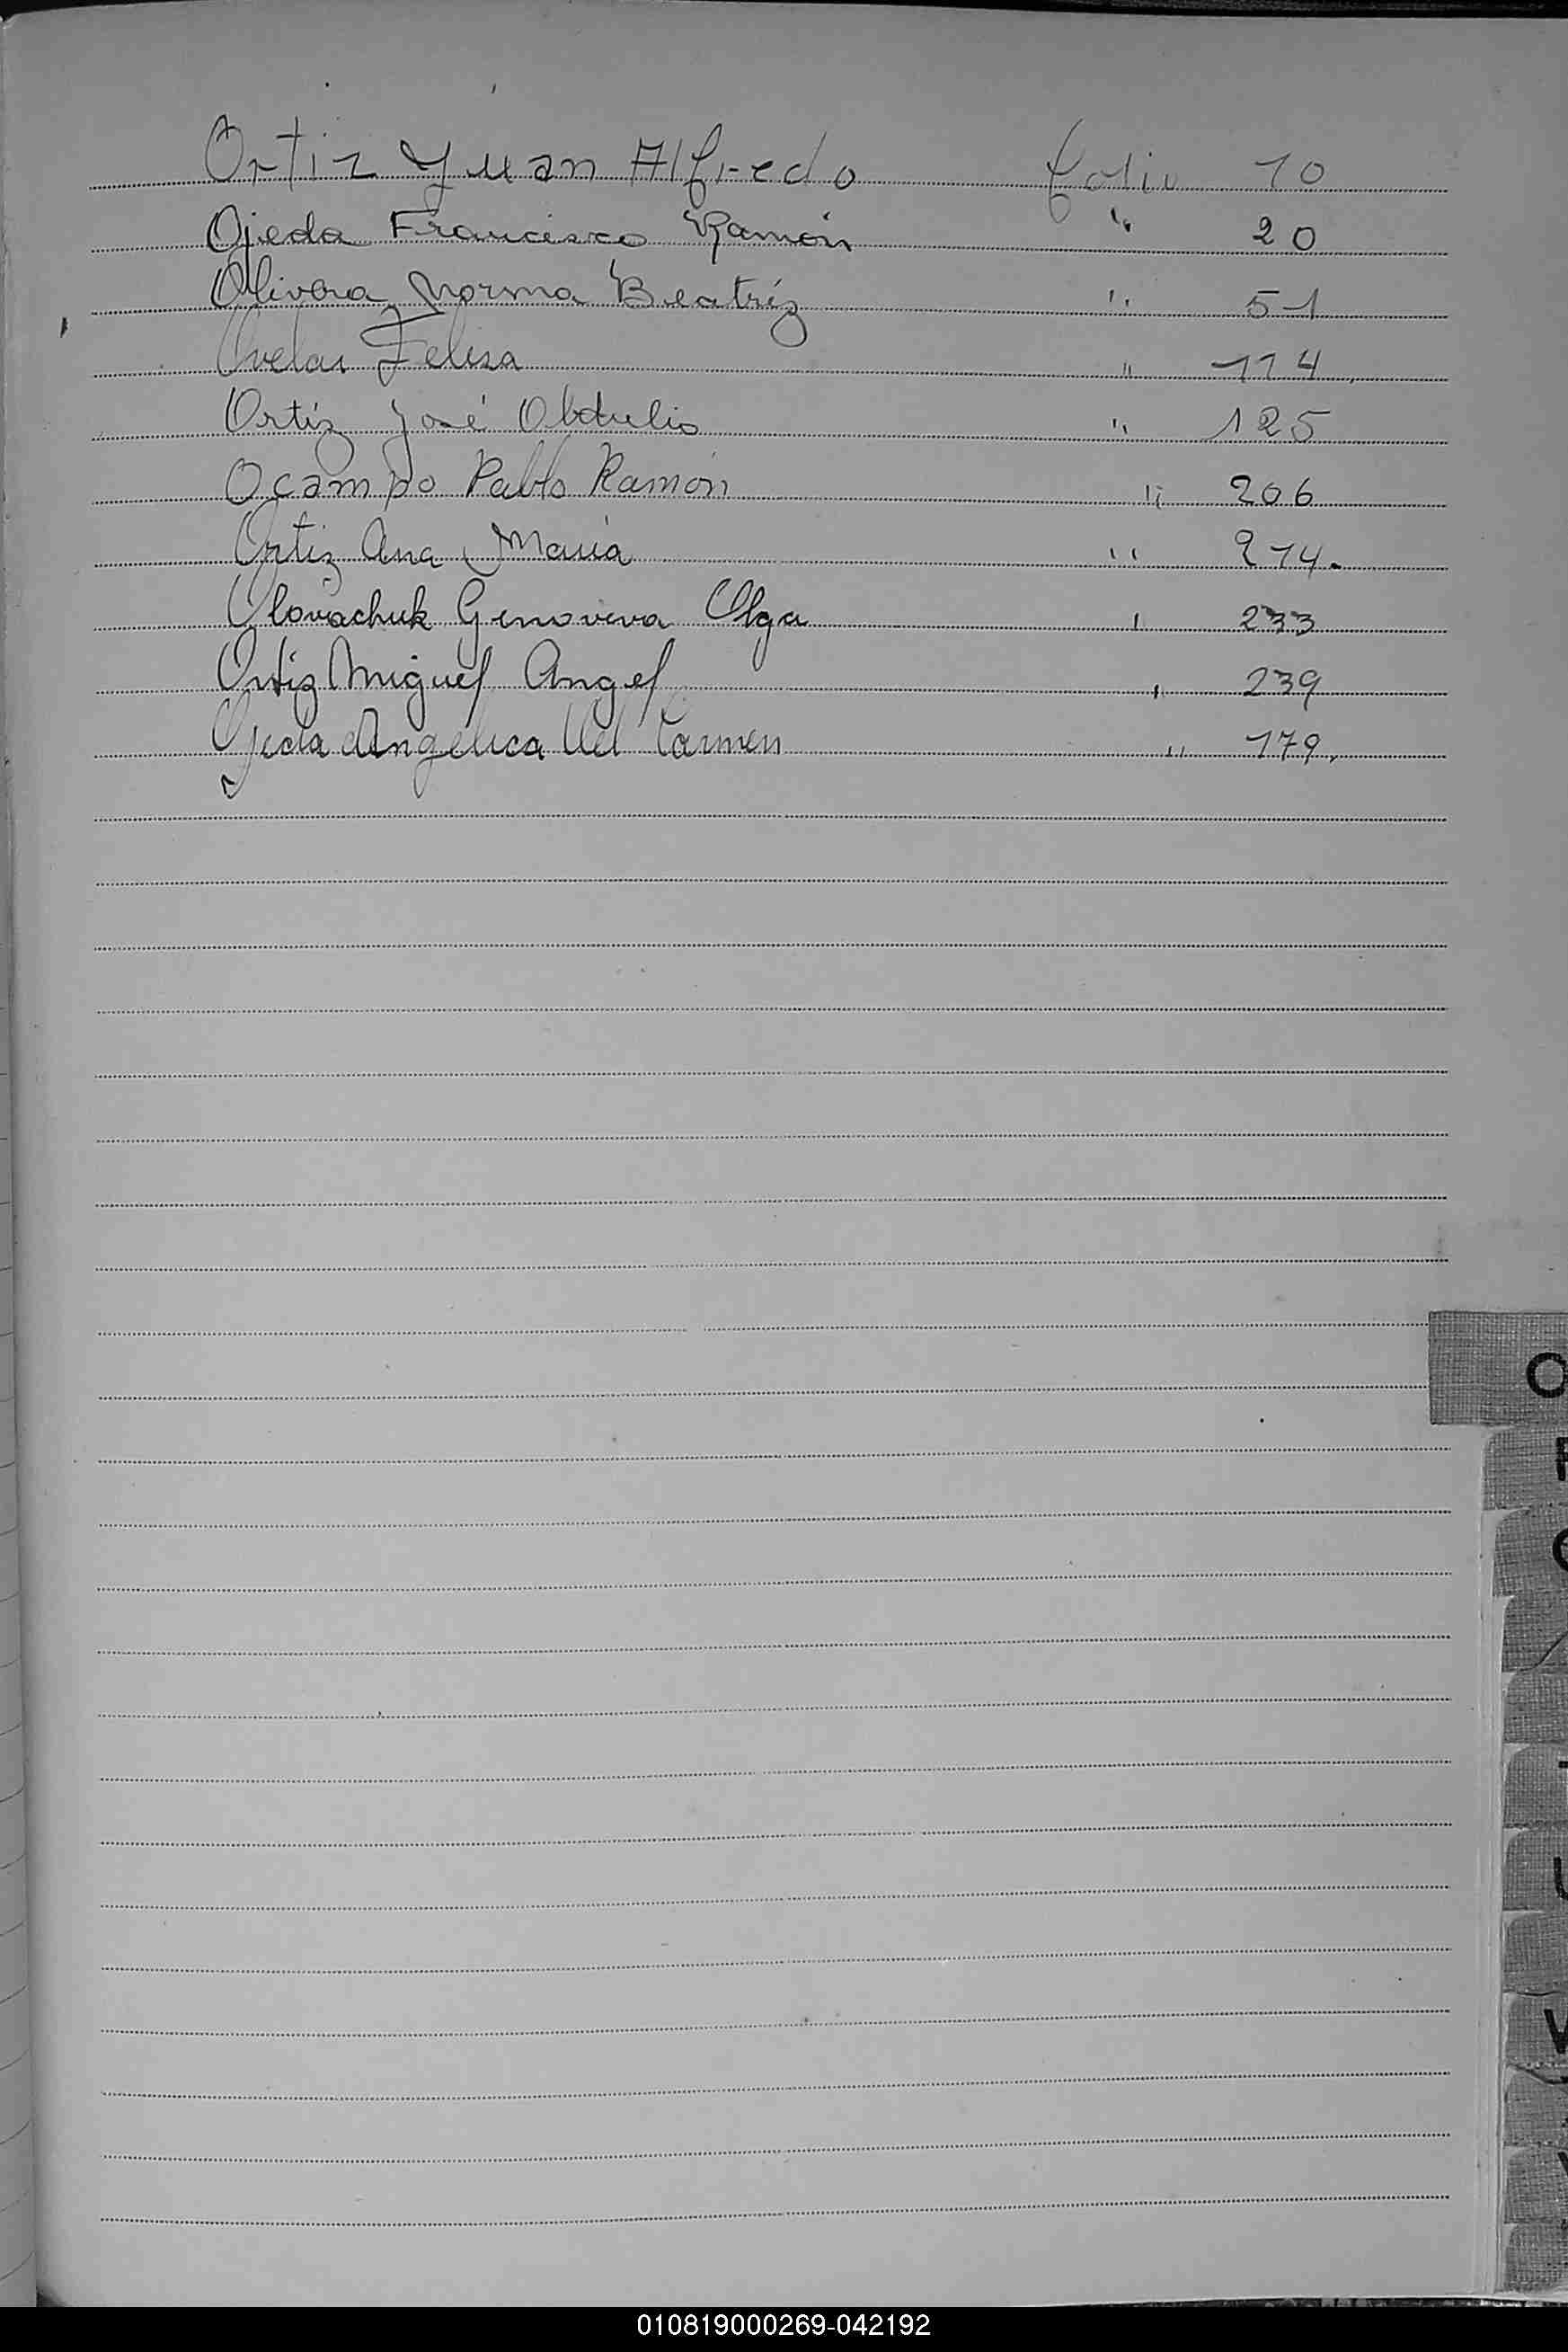 Ortiz Juan Alfredo folio 10
Ojeda Francisco Ramón " 20
Olivera Norma Beatríz " 51
Ovelar Felisa " 114
Ortíz José Obdulio " 125
Ocampo Pablo Ramón " 206
Ortiz Ana María " 214.
Olovachuk Genoveva Olga " 233
Ortiz Miguel Angel " 239
Ojeda Angélica Del Carmen " 179.
O
V
010819000269-042192